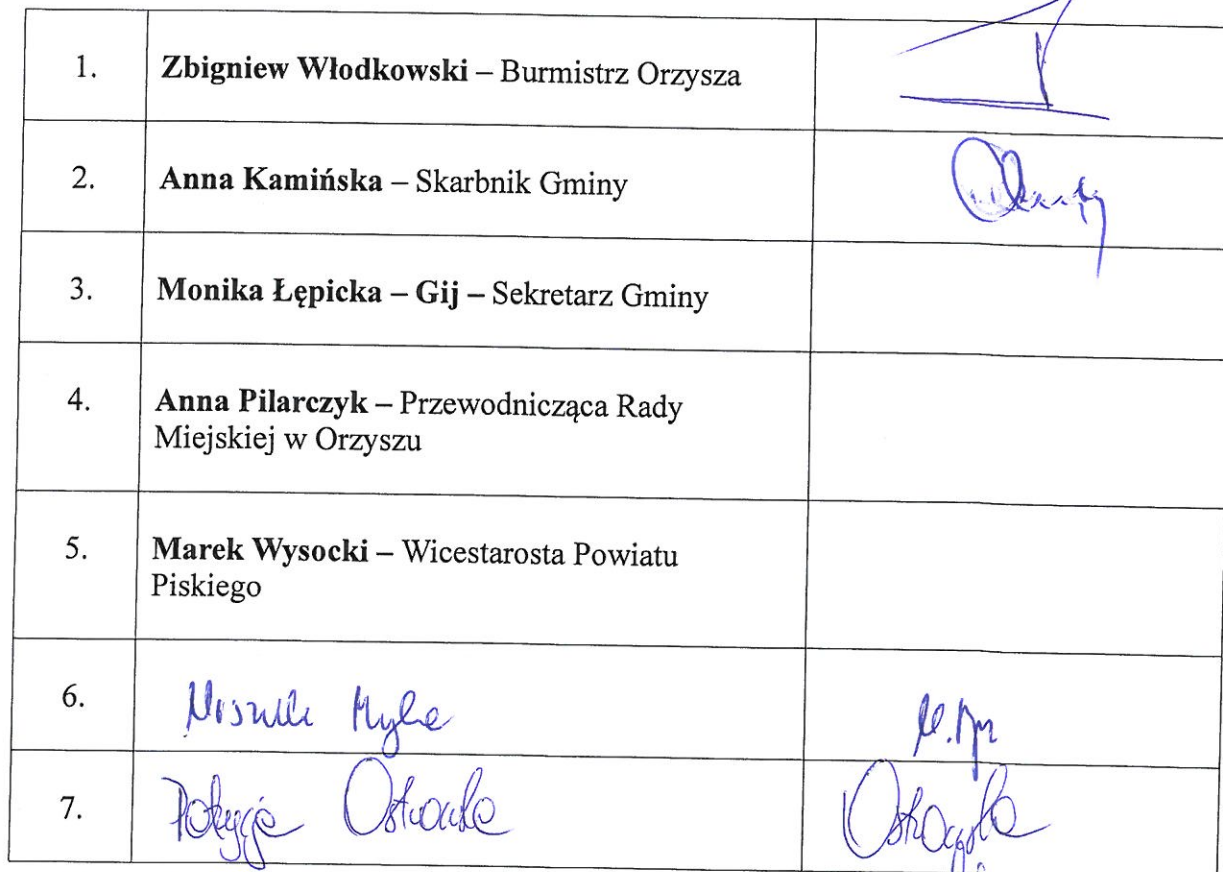 1. Zbigniew Włodkowski – Burmistrz Orzysza
2. Anna Kamińska – Skarbnik Gminy
3. Monika Łępicka – Gij – Sekretarz Gminy
4. Anna Pilarczyk – Przewodnicząca Rady
Miejskiej w Orzyszu
5. Marek Wysocki – Wicestarosta Powiatu
Piskiego
6.
7.